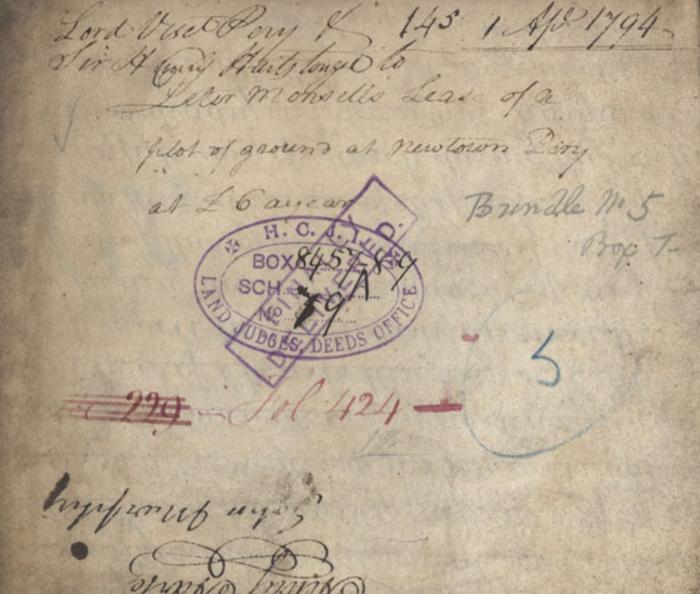 Lord Visct Pery & 145 1 Apl 1794
Sir Henry Hartstonge to
Peter Monsells Lease of a
plot of ground at Newtown Pery
at £6 a year
Bundle No 5
Box
H. C. J. I.
BOX 8457-89
SCH. A
No 79
LAND JUDGES, DEEDS OFFICE
229 - Fol. 424
5
John Murphy
Henry